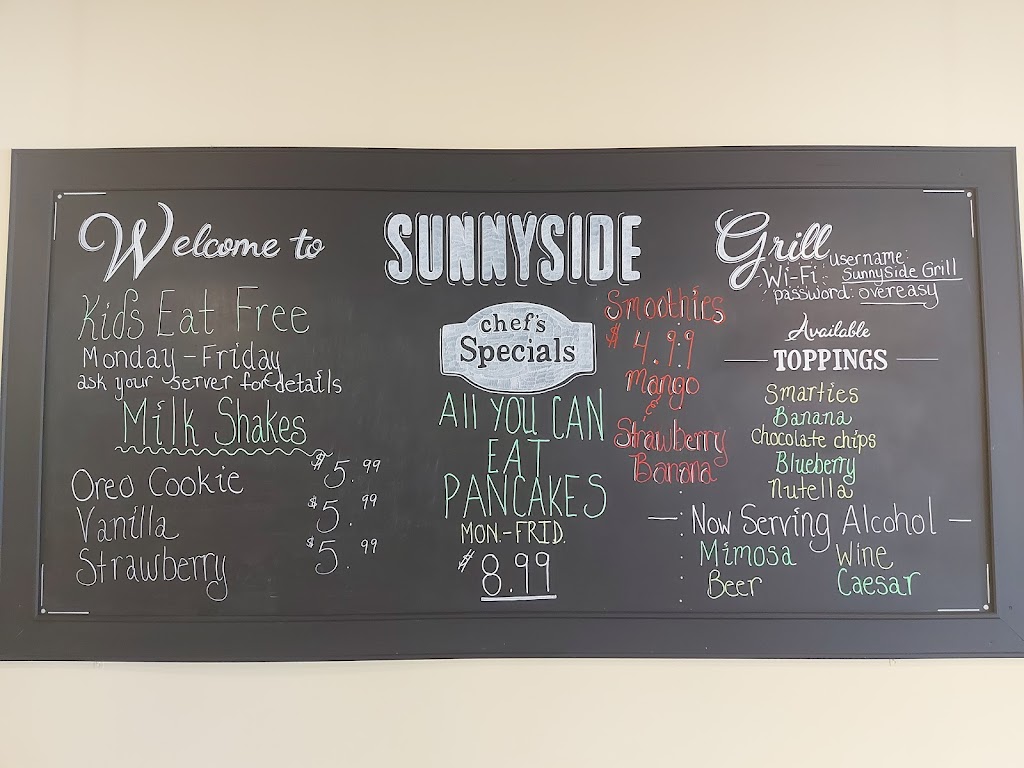 Welcome to SUNNYSIDE Grill
username:
Wi-Fi: SunnySide Grill
password: overeasy
Kids Eat Free
Monday-Friday
ask your server for details
Milk Shakes
Oreo Cookie $5.99
Vanilla $5.99
Strawberry $5.99
chef's
Specials
All YOU CAN
EAT
PANCAKES
MON-FRID.
$8.99
Smoothies
$4.99
Mango
&
Strawberry
Banana
Available
TOPPINGS
Smarties
Banana
Chocolate chips
Blueberry
Nutella
Now Serving Alcohol
Mimosa Wine
Beer Caesar